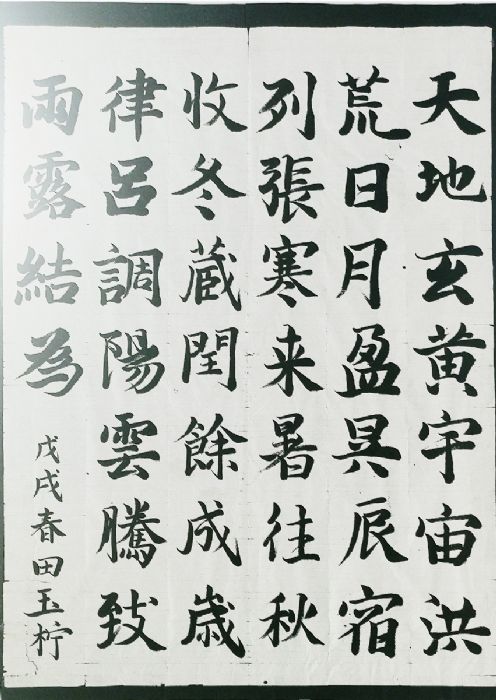 天地玄黃宇宙洪
荒日月盈昃辰宿
列張寒来暑往秋
收冬蔵閏餘成歳
律呂調陽雲騰致
雨露結為
戊戌春田玉柠